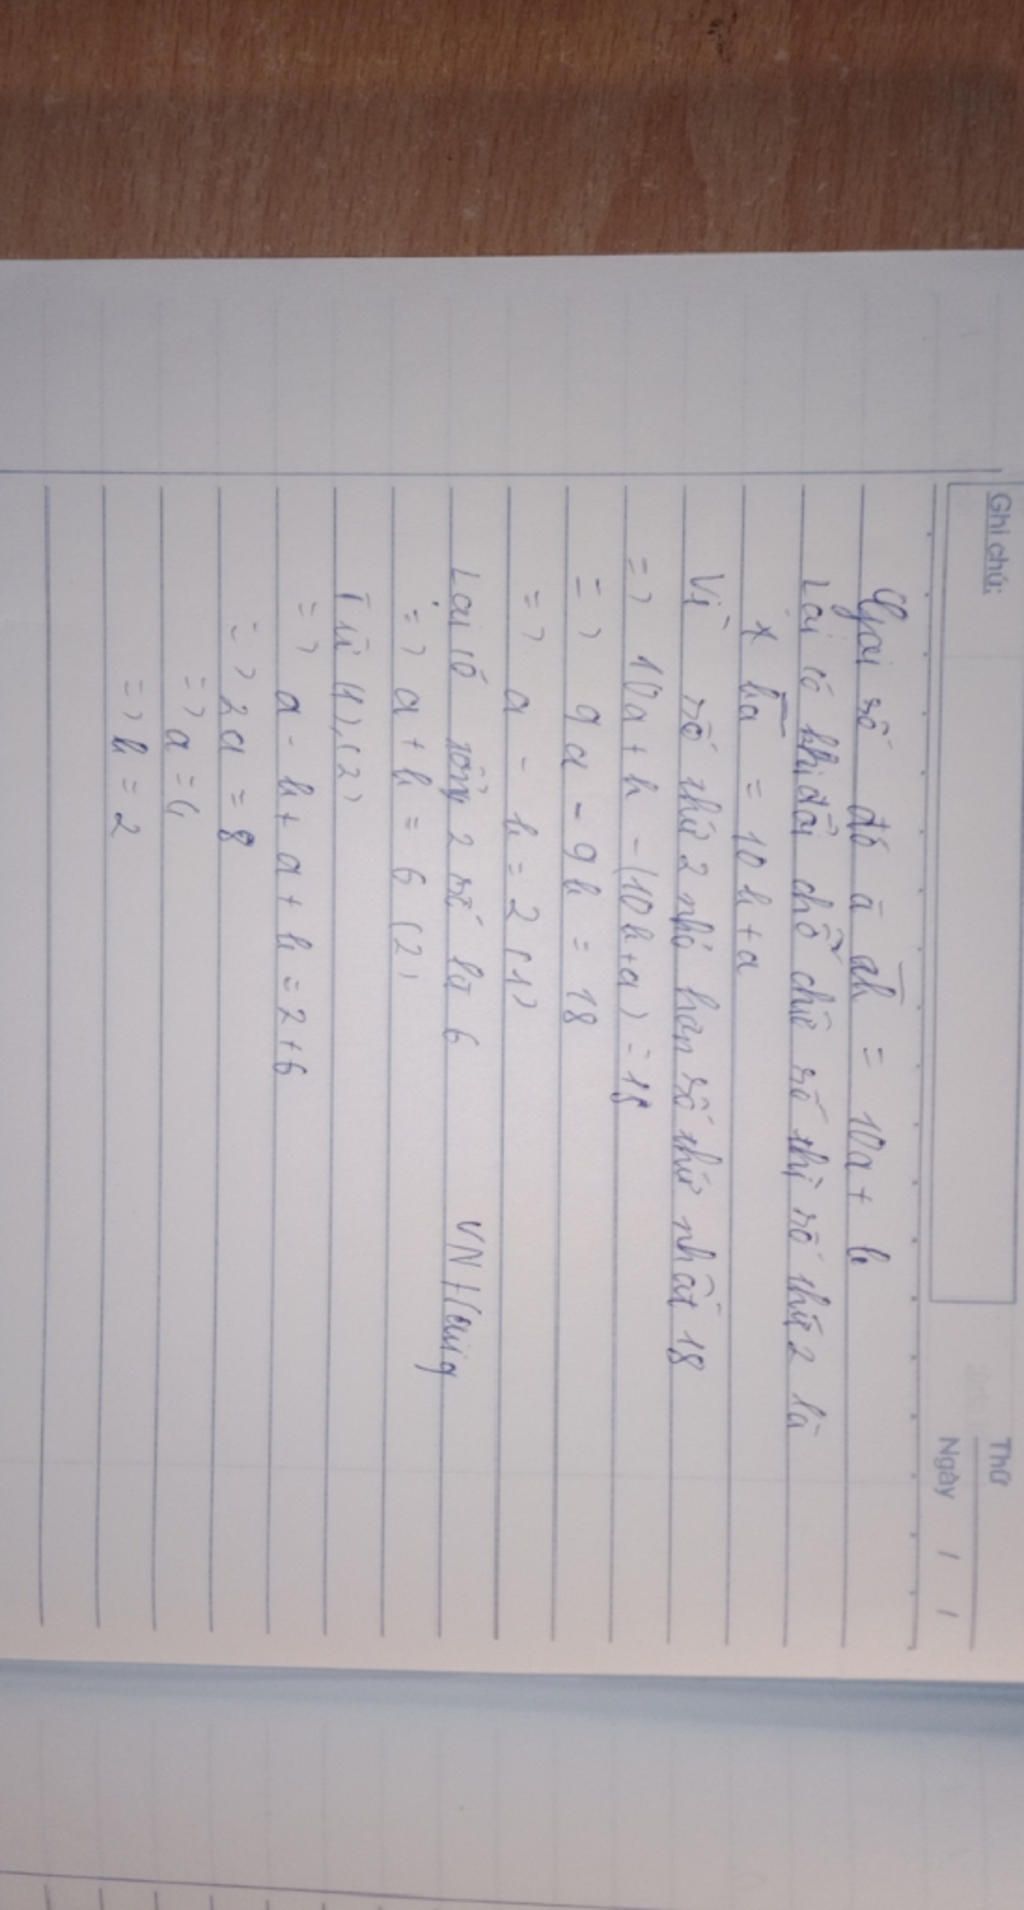 Ghi chú:
Thứ
Ngày / /
Gọi số đó là ab = 10a + b
Lại có khi đổi chỗ chữ số thì số thứ 2 là
* ba = 10b + a
Vì số thứ 2 nhỏ hơn số thứ nhất 18
=> 10a + b - (10b + a) = 18
=> 9a - 9b = 18
=> a - b = 2 (1)
Lại có tổng 2 số là 6
=> a + b = 6 (2)
Từ (1), (2)
=> a - b + a + b = 2 + 6
=> 2a = 8
=> a = 4
=> b = 2